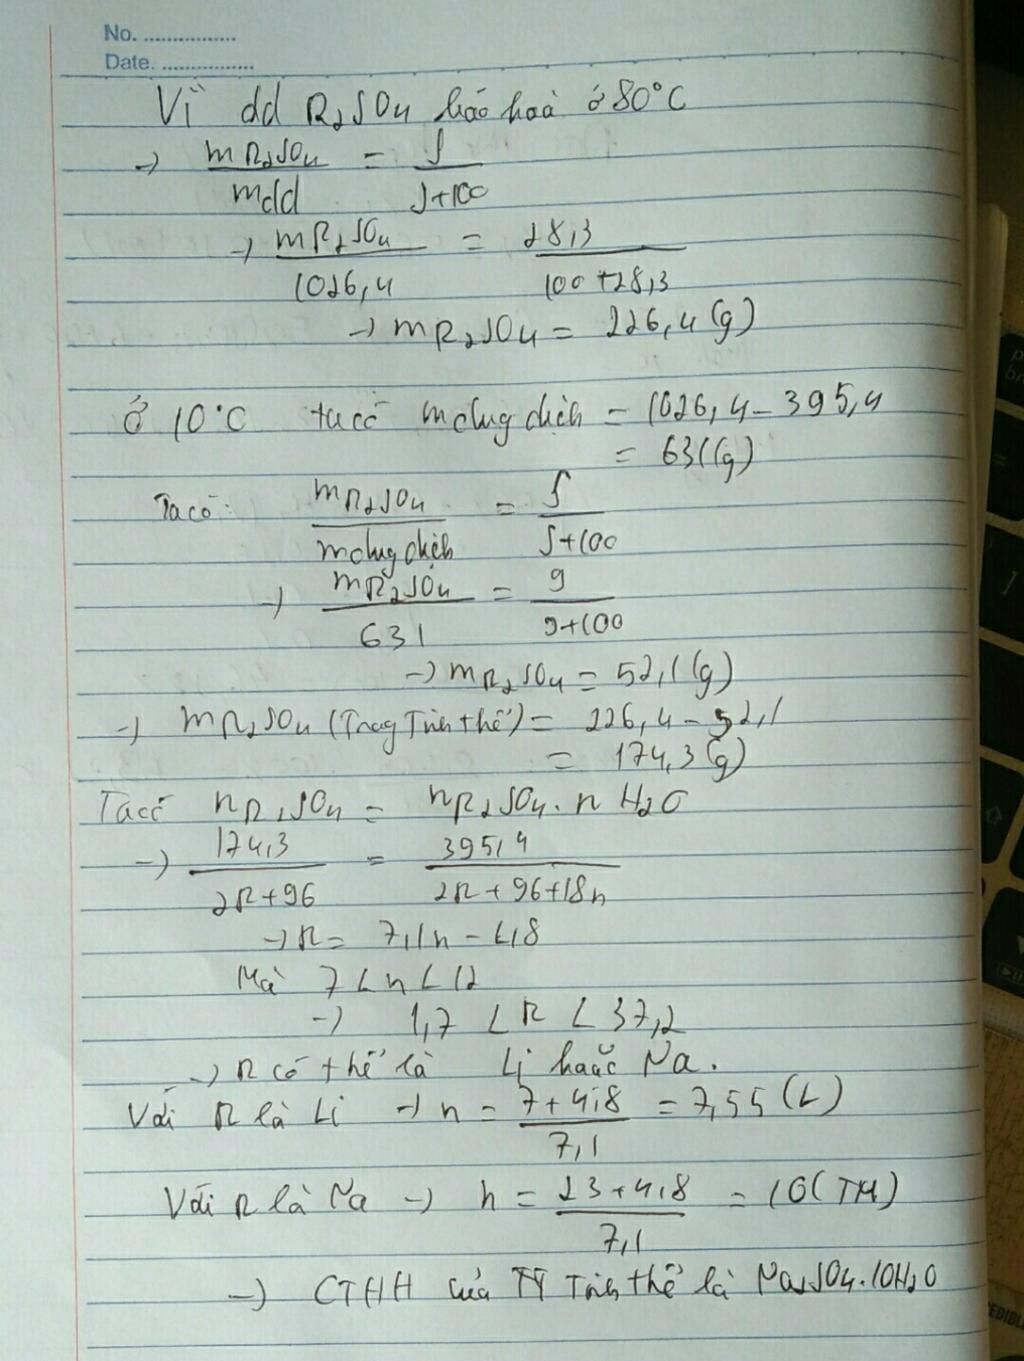 No. ................
Date. ................
Vì dd R₂SO₄ bão hoà ở 80°C
→ mR₂SO₄ / mdd = S / S+100
→ mR₂SO₄ / 1026,4 = 28,3 / 100+28,3
→ mR₂SO₄ = 226,4 (g)
Ở 10°C ta có mdung dịch = 1026,4 - 395,4
= 631(g)
Ta có: mR₂SO₄ / mdung dịch = S / S+100
→ mR₂SO₄ / 631 = 9 / 9+100
→ mR₂SO₄ = 52,1 (g)
→ mR₂SO₄ (Trong Tinh thể) = 226,4 - 52,1
= 174,3 (g)
Ta có nR₂SO₄ = nR₂SO₄.nH₂O
→ 174,3 / 2R+96 = 395,4 / 2R+96+18n
→ R = 7,1n - 4,8
Mà 7 < n < 12
→ 1,7 < R < 37,2
→ R có thể là Li hoặc Na.
Với R là Li → n = 7+4,8 / 7,1 = 7,55 (L)
Với R là Na → n = 23+4,8 / 7,1 = 10(TM)
→ CTHH của TT Tinh thể là Na₂SO₄.10H₂O